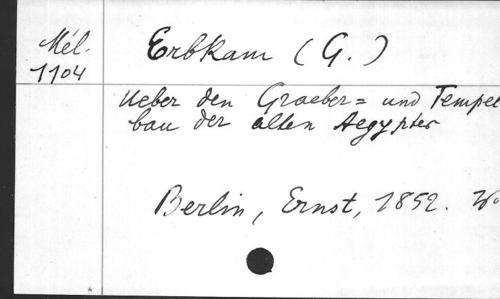 Mél.
1104
Erbkam (G.)
Ueber den Graeber= und Tempel
bau der alten Aegypter
Berlin, Ernst, 1852.